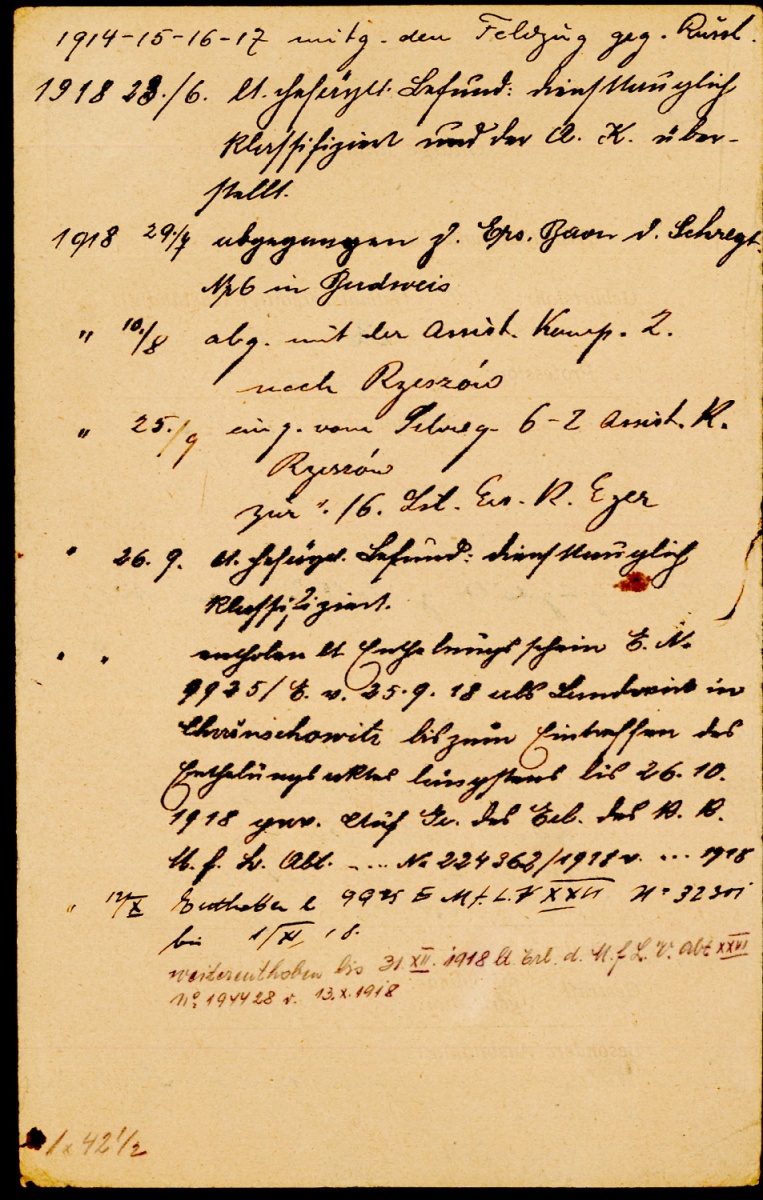 1914-15-16-17 mitg. den Feldzug geg. Russl.
1918 28./6. lt. Befund: diensttauglich
klassifiziert und der A. K. über-
stellt.
1918 29./7 abgegangen z. Ers. Baon d. Schregt.
№ 6 in Budweis
" 10./8 abg. mit der Assist. Komp. 2.
nach Rzeszów
" 25./9 eing. vom Schreg. 6-2 Assist. K.
Rzeszów
zur /6. Ers. K. Eger
" 26. 9. lt. Befund: diensttauglich
klassifiziert.
" " enthoben lt Enthebungsschein E. №
9925/E. v. 25.9.18 als Landwirt in
bis zum Eintreffen des
Enthebungsaktes längstens bis 26.10.
1918 Auf Gr. des Erl. des K. K.
M. f. L. Abt. .... № /1918 v. ... 1918
" 12/X Enthoben 99 M f. L. V XXVI №
bis 1/XI 18.
weiterenthoben bis 31 XII. 1918 lt. Erl. d. M. f L. V. Abt XXVI
№ 194428 v. 13.X.1918
1 x 42 1/2